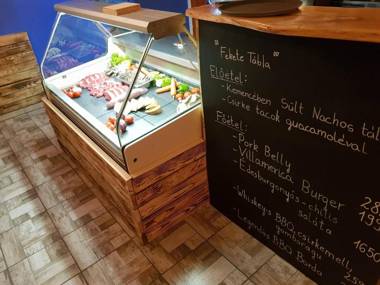 "Fekete Tábla"
Előétel:
- Kemencében Sült Nachos tál
- Csirke tacok guacamoléval
Főétel:
- Pork Belly
- Villamerica Burger
- Édesburgonyás-chilis
saláta
- Whiskeys BBQ Csirkemell
1650
- Legendás BBQ Borda